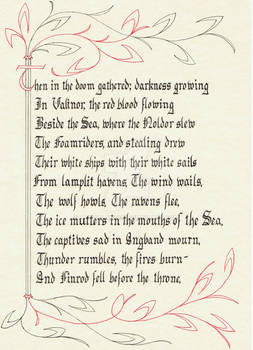 Then in the doom gathered; darkness growing
In Valinor, the red blood flowing
Beside the Sea, where the Noldor slew
The Foamriders, and stealing drew
Their white ships with their white sails
From lamplit havens. The wind wails,
The wolf howls. The ravens flee,
The ice mutters in the mouths of the Sea.
The captives sad in Angband mourn,
Thunder rumbles, the fires burn-
And Finrod fell before the throne.